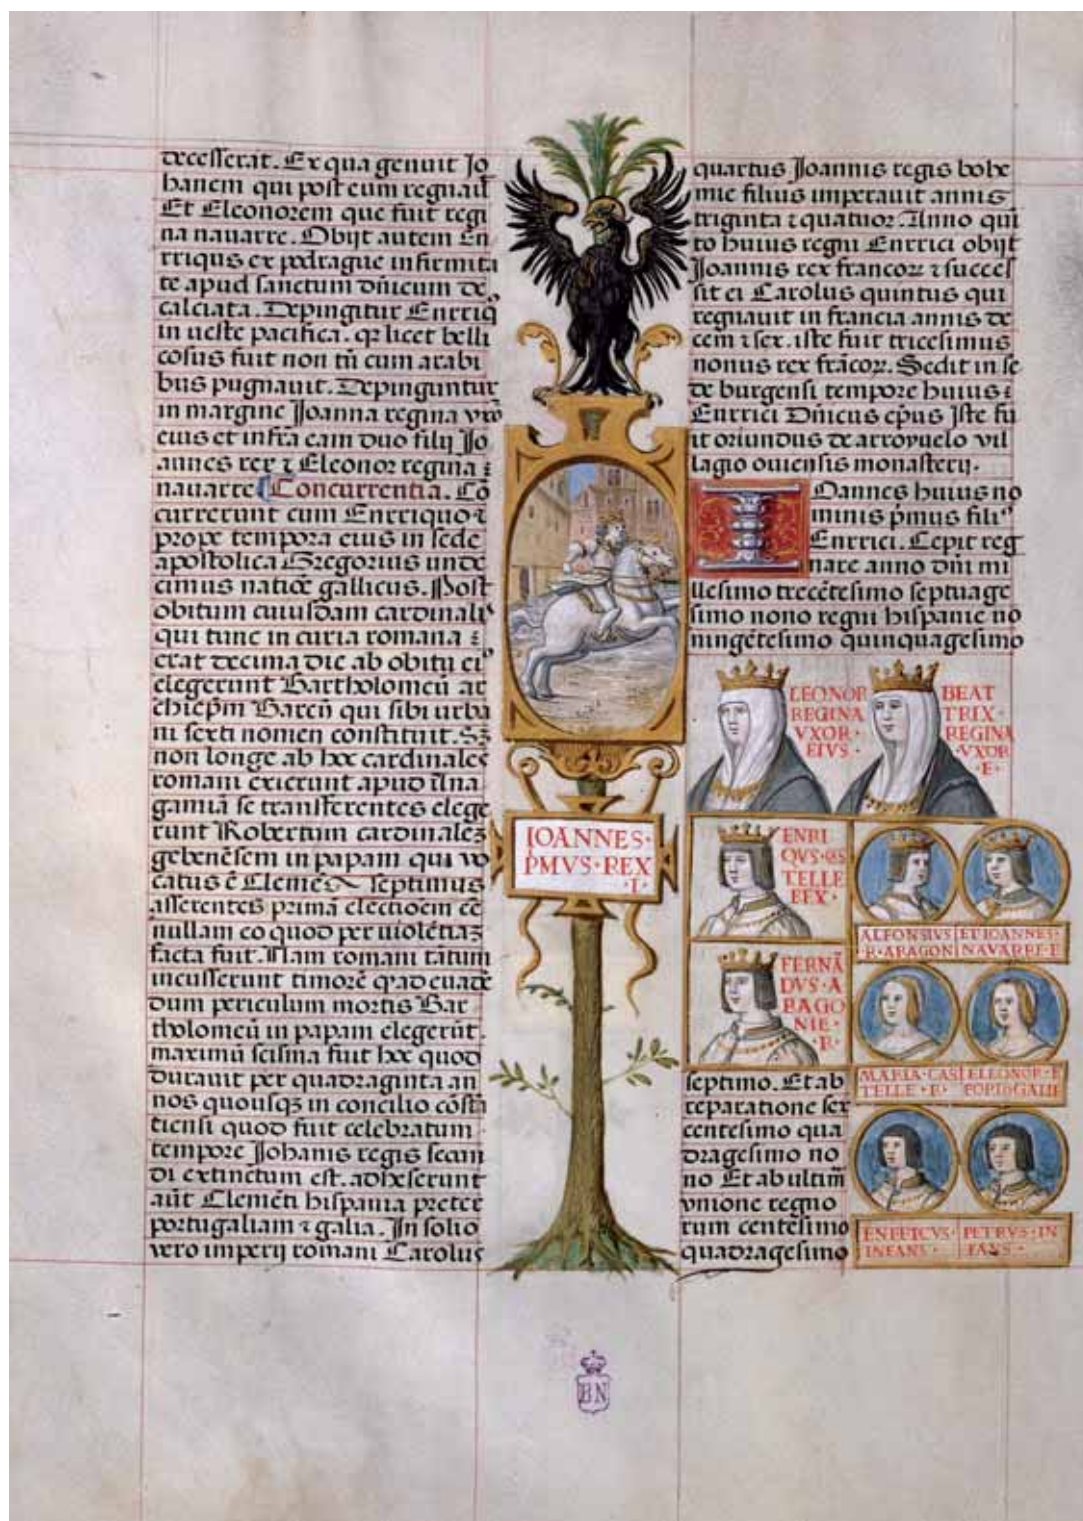 decesserat. Ex qua genuit Jo
hanem qui post eum regnauit
Et Eleonorem que fuit regi
na nauarre. Obijt autem En
rriqus ex podrague infirmita
te apud sanctum dn̄icum de
calciata. Depingitur Enrriqꝰ
in ueste pacifica. qꝛ licet belli
cosus fuit non tn̄ cum arabi
bus pugnauit. Depinguntur
in margine Joanna regina vxō
eius et infra eam duo filij Jo
annes rex ⁊ Eleonor regina
nauarre Concurrentia. Cō
currerunt cum Enrriquo ⁊
prope tempora eius in sede
apostolica Gregorius unde
cimus natiōe gallicus. Post
obitum cuiusdam cardinalis
qui tunc in curia romana
erat decima die ab obitu eiꝰ
elegerunt Bartholomeū ar
chiepm̄ Barēn qui sibi urba
ni sexti nomen constituit. Sꝫ
non longe ab hoc cardinales
romani exierunt apud Ana
ganiā se transferentes elege
runt Robertum cardinaleꝫ
gebenēsem in papam qui vo
catus ē Clemēs septimus
asserentes primā electioēm eē
nullam eo quod per uiolētiaꝫ
facta fuit. Nam romani tātum
incusserunt timorē ꝙ ad euadē
dum periculum mortis Bar
tholomeū in papam elegerūt.
maximū scisma fuit hoc quod
durauit per quadraginta an
nos quousqꝫ in concilio cōstā
tiensi quod fuit celebratum
tempore Johanis regis secun
di extinctum est. adheserunt
aūt Clemēti hispania preter
portugaliam ⁊ galia. In solio
vero imperij romani Carolus
IOANNES·
PMVS·REX
·I·
quartus Joannis regis bohe
mie filius imperauit annis
triginta ⁊ quatuor. Anno qui
to huius regni Enrrici obijt
Joannis rex francoꝝ ⁊ succes
sit ei Carolus quintus qui
regnauit in francia annis de
cem ⁊ sex. iste fuit tricesimus
nonus rex frācoꝝ. Sedit in se
de burgensi tempore huius
Enrrici Dn̄icus ep̄us Iste fu
it oriundus de arroyuelo vil
lagio oniensis monasterij.
IOannes huius no
minis p̄mus filiꝰ
Enrrici. Cepit reg
nare anno dn̄i mi
llesimo trecētesimo septuage
simo nono regni hispanie no
ningētesimo quinquagesimo
LEONOR
REGINA
VXOR·
EIVS·
BEAT
TRIX·
REGINA
·VXOR
·E·
ENRI
QVS·CAS
TELLE
REX·
FERNĀ
DVS·A
RAGO
NIE·
·R·
ALFONSIVS
·R·ARAGON
ET IOANNES·
NAVARRE·R
MARIA·CAS
TELLE·R·
ELEONOR·R
PORTOGALIE
ENRRICVS·
INFANS·
PETRVS·IN
FANS·
septimo. Et ab
reparatione sex
centesimo qua
dragesimo no
no Et ab ultim̄
vnione regno
rum centesimo
quadragesimo
BN